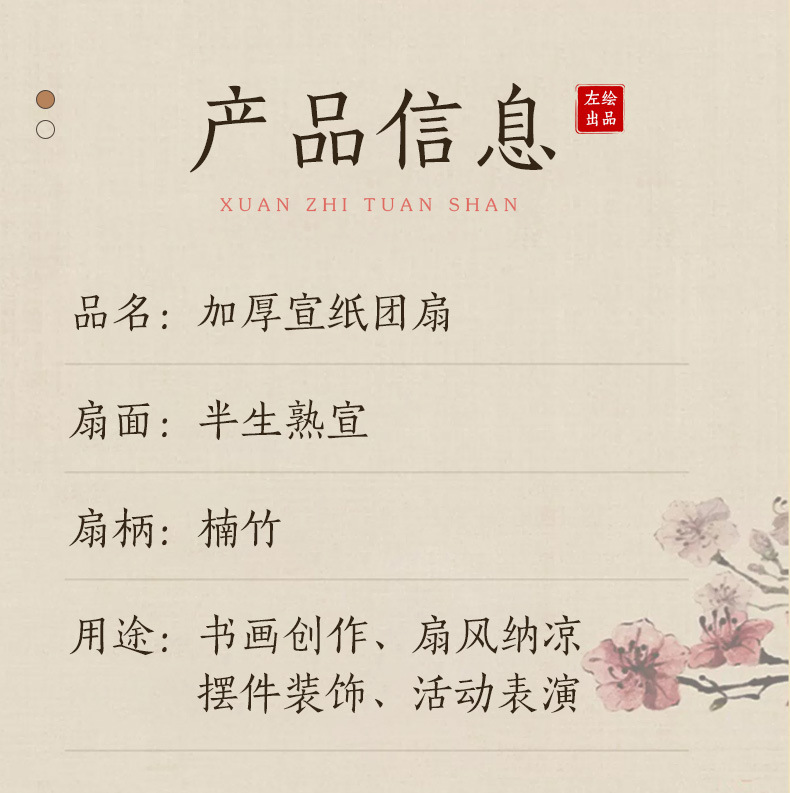 产品信息
左绘
出品
XUAN ZHI TUAN SHAN
品名：加厚宣纸团扇
扇面：半生熟宣
扇柄：楠竹
用途：书画创作、扇风纳凉
摆件装饰、活动表演